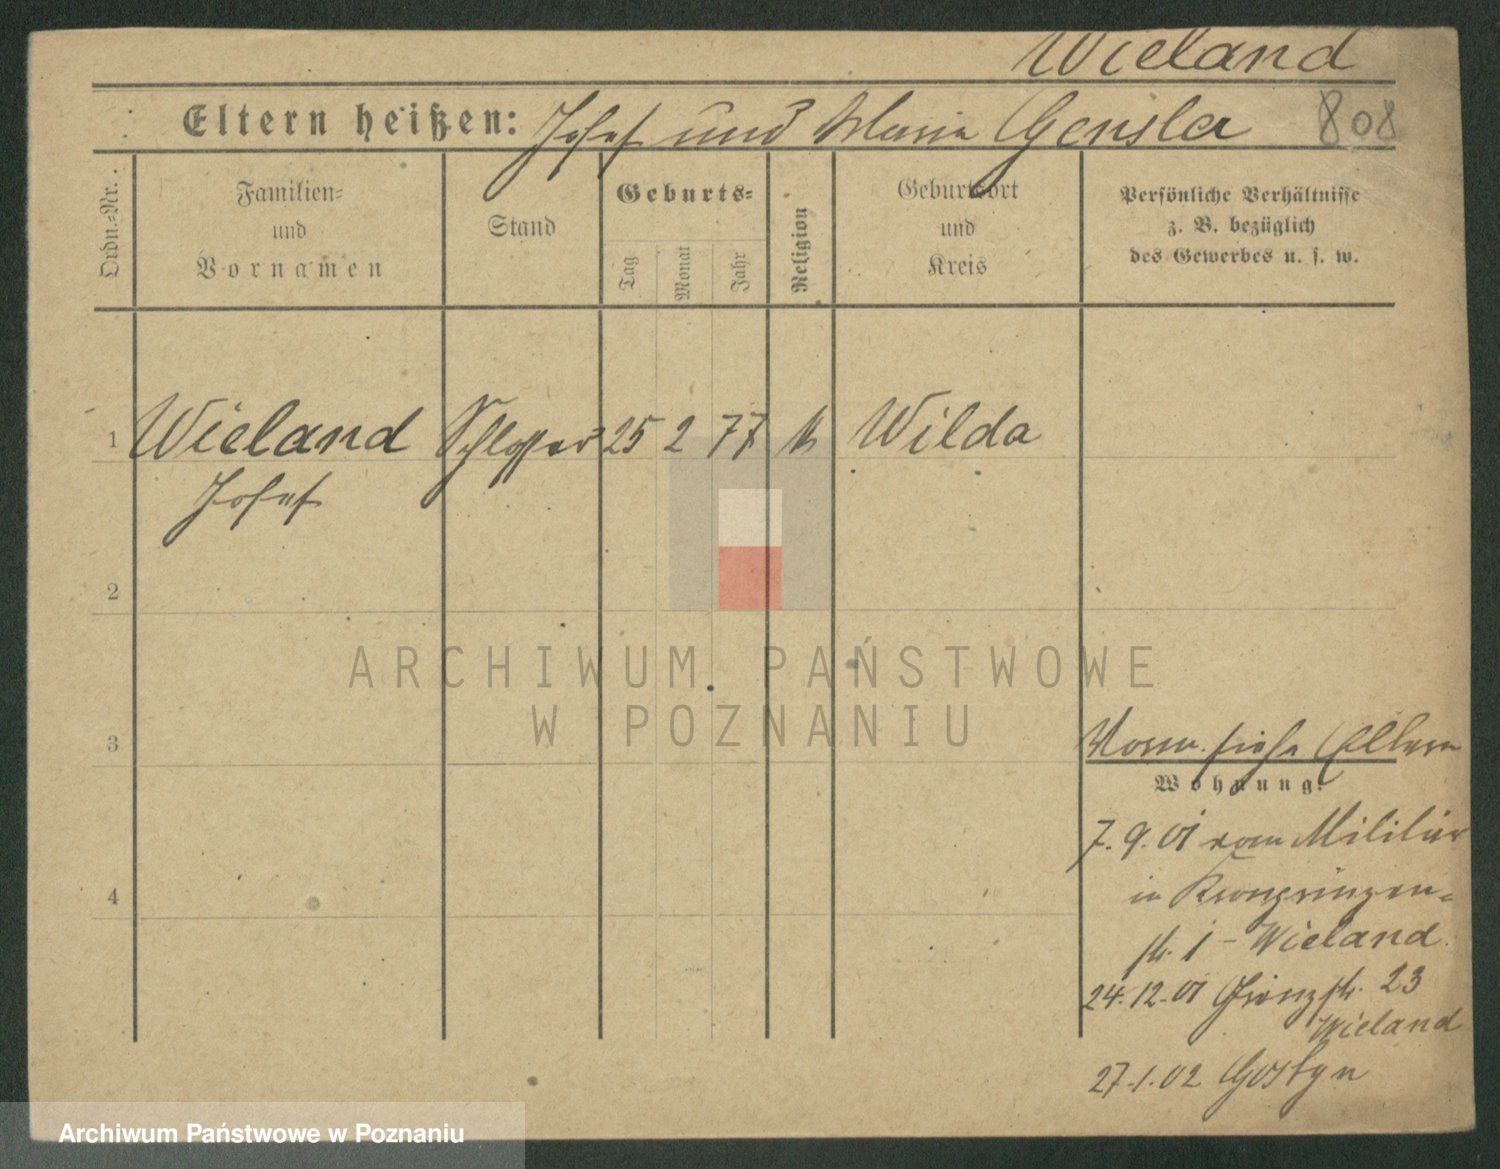 Wieland
Eltern heißen: Josef und Maria Gensler 808
Ordn.-Nr.
Familien-
und
Vornamen
Stand
Geburts-
Tag
Monat
Jahr
Religion
Geburtsort
und
Kreis
Persönliche Verhältnisse
z. B. bezüglich
des Gewerbes u. s. w.
1 Wieland Schlosser 25 2 77 k Wilda
Josef
2
ARCHIWUM PAŃSTWOWE
W POZNANIU
3
siehe Eltern
Wohnung:
7.9.01 vom Militär
4
in Kronprinzen-
str. 1 - Wieland.
24.12.01 str. 23
Wieland
27.1.02 Gostyn
Archiwum Państwowe w Poznaniu